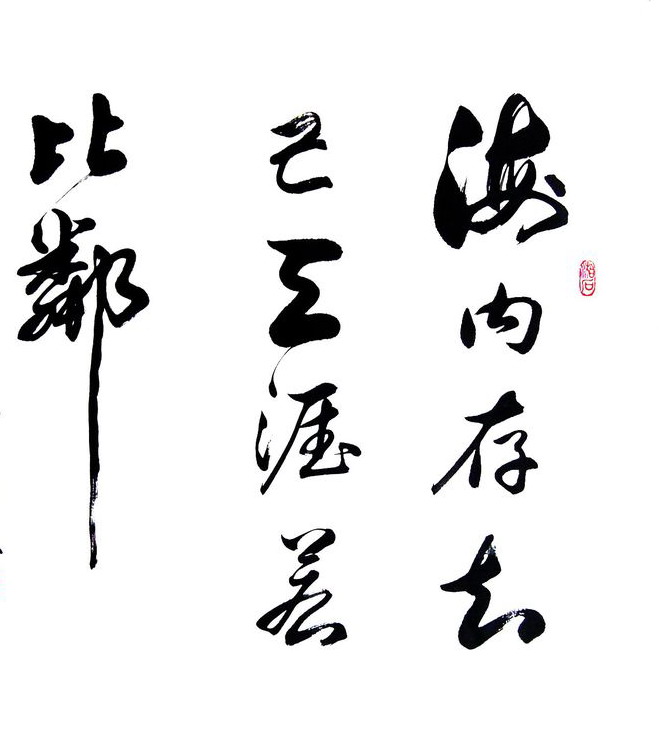 海内存知
己天涯若
比邻